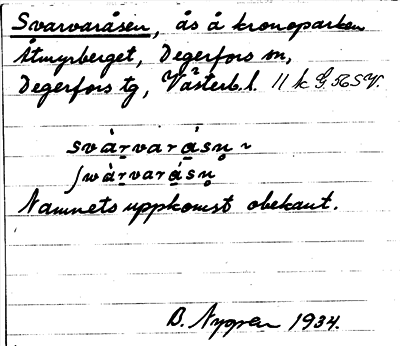 Svarvaråsen, ås å kronoparken
Åtmyrberget, Degerfors sn,
Degerfors tg, Västerb.l. 11 k G.56 SV.
svàrvarásn̥ ~
ʃwàrvarásn̥
Namnets uppkomst obekant.
B. Nygren 1934.